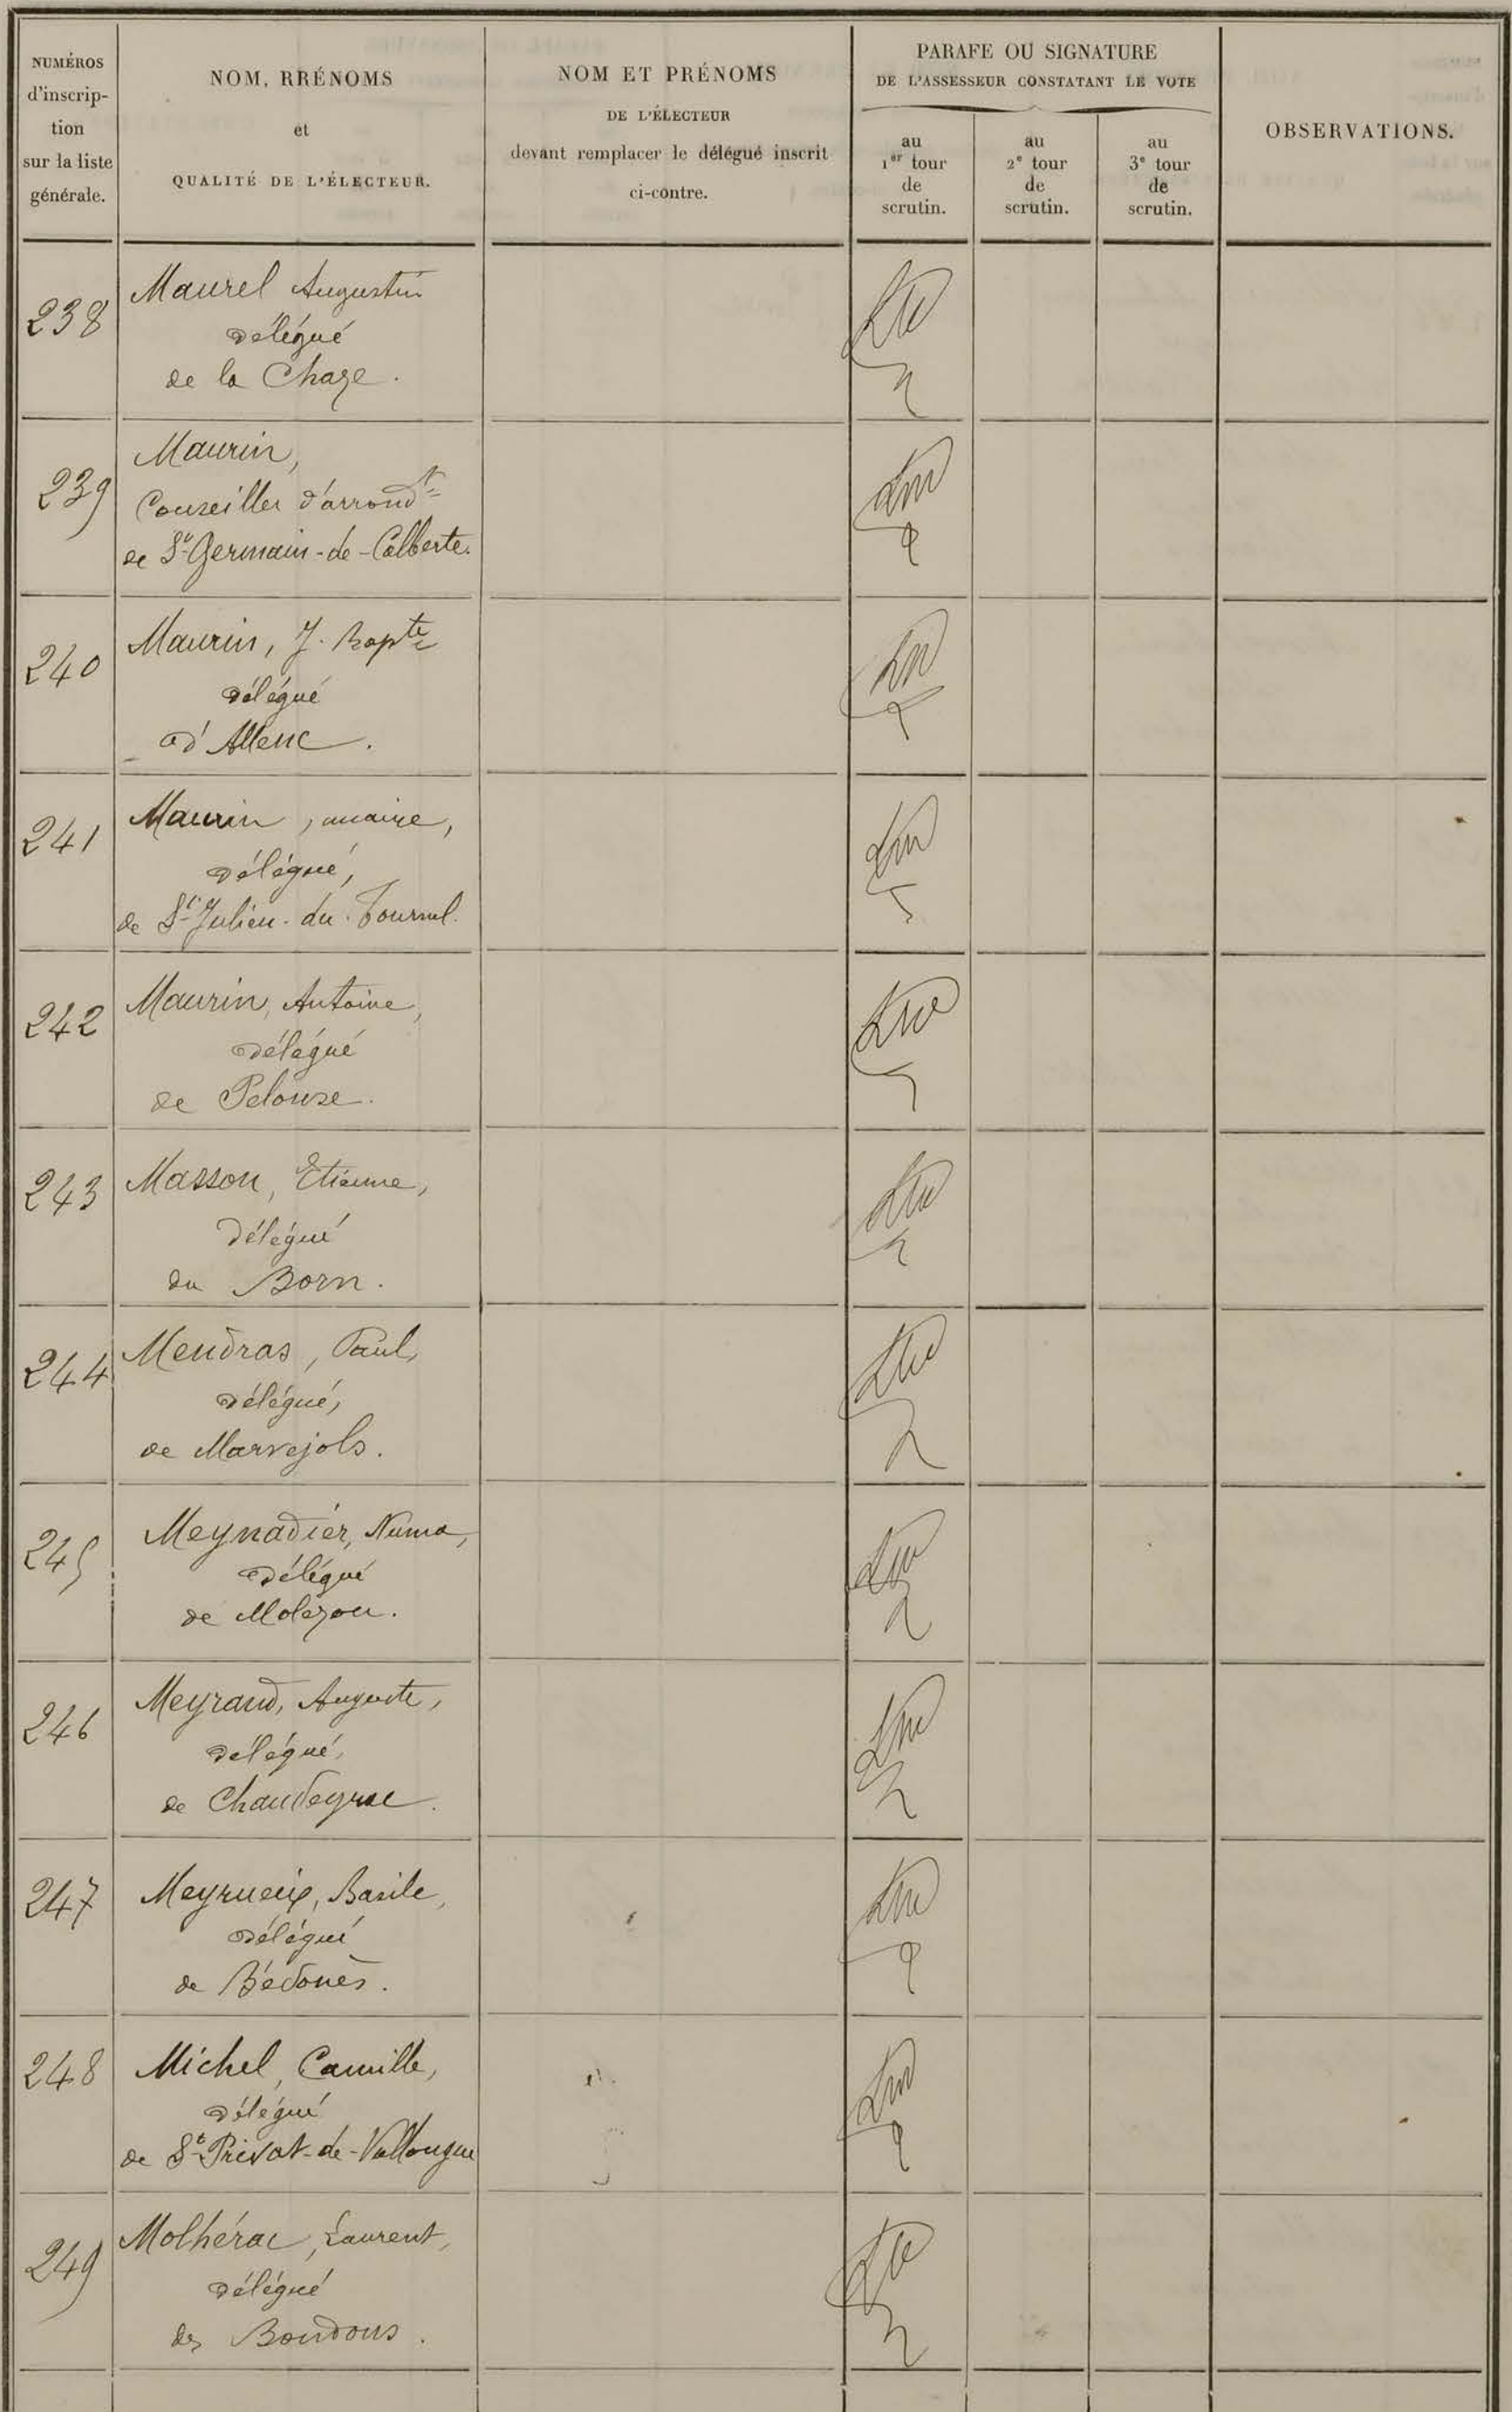 NUMÉROS
d'inscrip-
tion
sur la liste
générale.
NOM, RRÉNOMS
et
QUALITÉ DE L'ÉLECTEUR.
NOM ET PRÉNOMS
DE L'ÉLECTEUR
devant remplacer le délégué inscrit
ci-contre.
PARAFE OU SIGNATURE
DE L'ASSESSEUR CONSTATANT LE VOTE
au
1er tour
de
scrutin.
au
2e tour
de
scrutin.
au
3e tour
de
scrutin.
OBSERVATIONS.
238
Maurel Augustin
délégué
de la Chaze.
239
Maurin,
Conseiller d'arrondt
de St Germain-de-Calberte.
240
Maurin, J. Bapte
délégué
d'Allenc.
241
Maurin, maire,
délégué,
de St Julien-du-Tournel.
242
Maurin, Antoine,
délégué
de Pelouse.
243
Masson, Etienne,
délégué
du Born.
244
Mendras, Paul,
délégué,
de Marvejols.
245
Meynadier, Numa,
délégué
de Molezon.
246
Meyrand, Auguste,
délégué,
de Chaudeyrac.
247
Meyrueix, Basile,
délégué
de Bédouès.
248
Michel, Camille,
délégué
de St Privat-de-Vallongue
249
Molhérac, Laurent,
délégué
des Bondons.